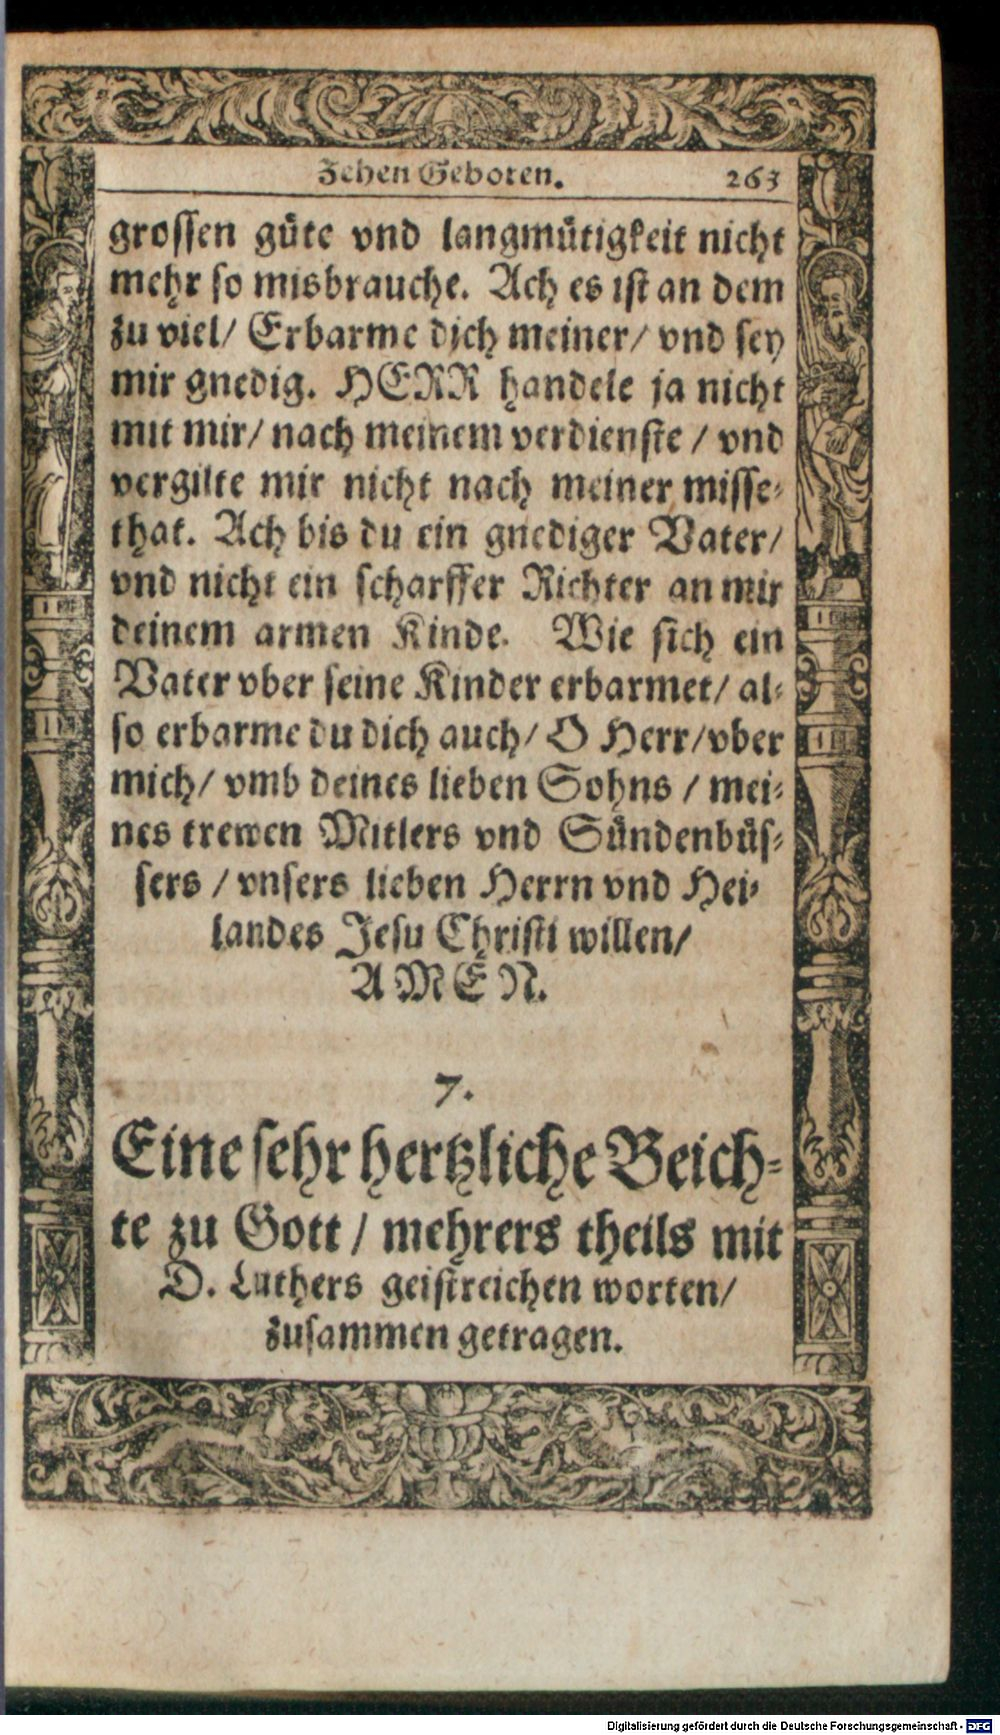 Zehen Geboten. 263
grossen güte vnd langmütigkeit nicht
mehr so misbrauche. Ach es ist an dem
zu viel/ Erbarme dich meiner/ vnd sey
mir gnedig. HERR handele ja nicht
mit mir/ nach meinem verdienste / vnd
vergilte mir nicht nach meiner misse-
that. Ach bis du ein gnediger Vater/
vnd nicht ein scharffer Richter an mir
deinem armen Kinde. Wie sich ein
Vater vber seine Kinder erbarmet/ al-
so erbarme du dich auch/ O Herr/ vber
mich/ vmb deines lieben Sohns / mei-
nes trewen Mitlers vnd Sündenbüs-
sers / vnsers lieben Herrn vnd Hei-
landes Jesu Christi willen/
AMEN.
7.
Eine sehr hertzliche Beich-
te zu Gott / mehrers theils mit
D. Luthers geistreichen worten/
zusammen getragen.
Digitalisierung gefördert durch die Deutsche Forschungsgemeinschaft - DFG